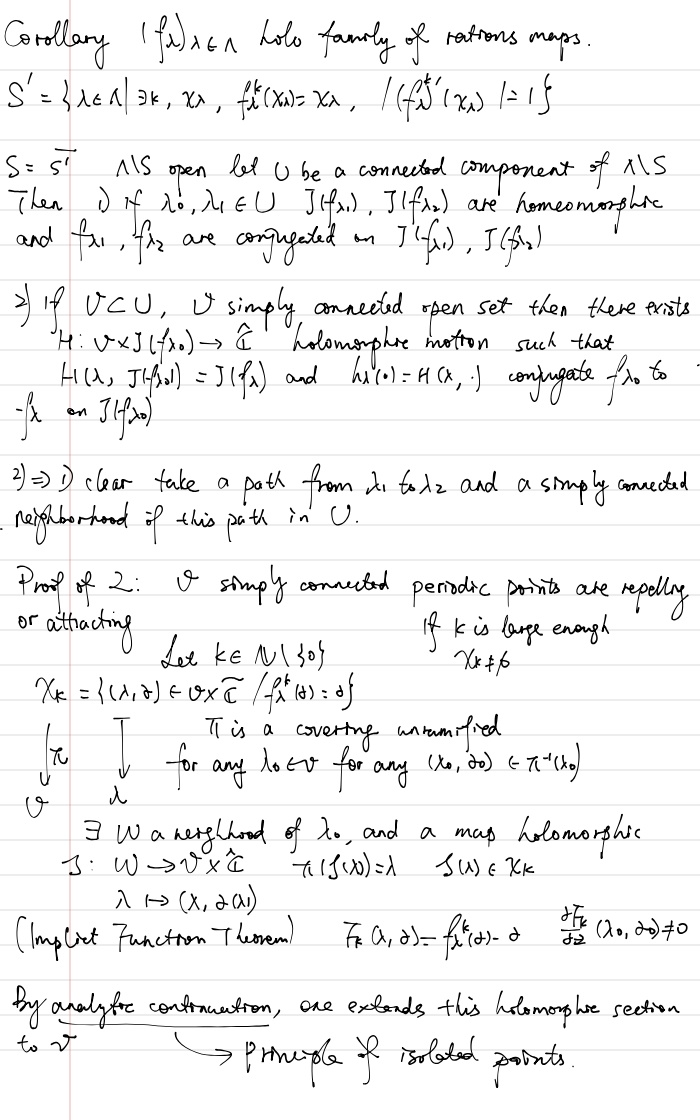 Corollary (fλ)λ∈Λ holo family of rations maps.
S' = {λ∈Λ| ∃k, xλ, fλ^k(xλ)=xλ, |(fλ^k)'(xλ)|=1}
S = S̅' Λ\S open let U be a connected component of Λ\S
Then 1) if λ0, λ1 ∈ U J(fλ1), J(fλ2) are homeomorphic
and fλ1, fλ2 are conjugated on J(fλ1), J(fλ2)
2) If V⊂U, V simply connected open set then there exists
H: V×J(fλ0) → Ĉ holomorphic motion such that
H(λ, J(fλ0)) = J(fλ) and hλ(·) = H(λ, ·) conjugate fλ0 to
fλ on J(fλ0)
2) ⇒ 1) clear take a path from λ1 to λ2 and a simply connected
neighborhood of this path in U.
Proof of 2: V simply connected periodic points are repelling
or attracting If k is large enough
Let k∈ℕ\{0} Xk ≠ ∅
Xk = {(λ,z) ∈ V×C̅ / fλ^k(z) = z}
↓π ↓ π is a covering unramified
V λ for any λ0∈V for any (λ0, z0) ∈ π⁻¹(λ0)
∃ W a neighhood of λ0, and a map holomorphic
S: W → V×Ĉ π(S(λ))=λ S(λ) ∈ Xk
λ ↦ (λ, z(λ))
(Implict Function Theorem) Fk(λ, z) = fλ^k(z) - z ∂Fk/∂z (λ0, z0) ≠ 0
By analytic continuation, one extends this holomorphic section
to V → Principle of isolated points.